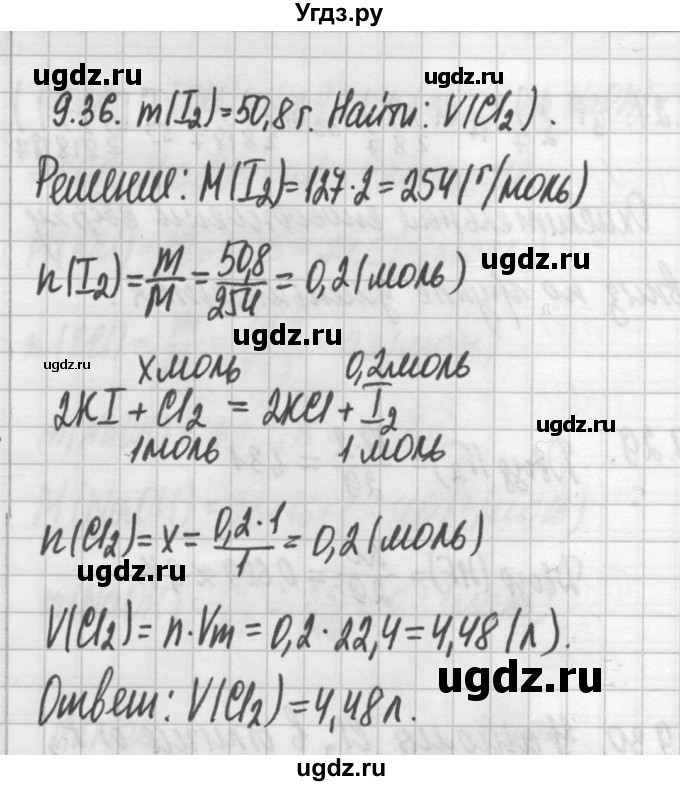 Угдз.ру
ugdz.ru ugdz.ru
9.36. m(I₂)=50,8 г. Найти: V(Cl₂).
Решение: M(I₂)=127·2=254(г/моль)
n(I₂)=m/M=50,8/254=0,2(моль)
ugdz.ru
ugdz.ru
ugdz.ru xмоль 0,2моль
2KI+Cl₂=2KCl+I₂
ugdz.ru
1моль 1моль
n(Cl₂)=x=0,2·1/1=0,2(моль)
ugdz.ru
V(Cl₂)=n·Vm=0,2·22,4=4,48(л).
ugdz.ru
Ответ: V(Cl₂)=4,48л.
ugdz.ru
ugdz.ru